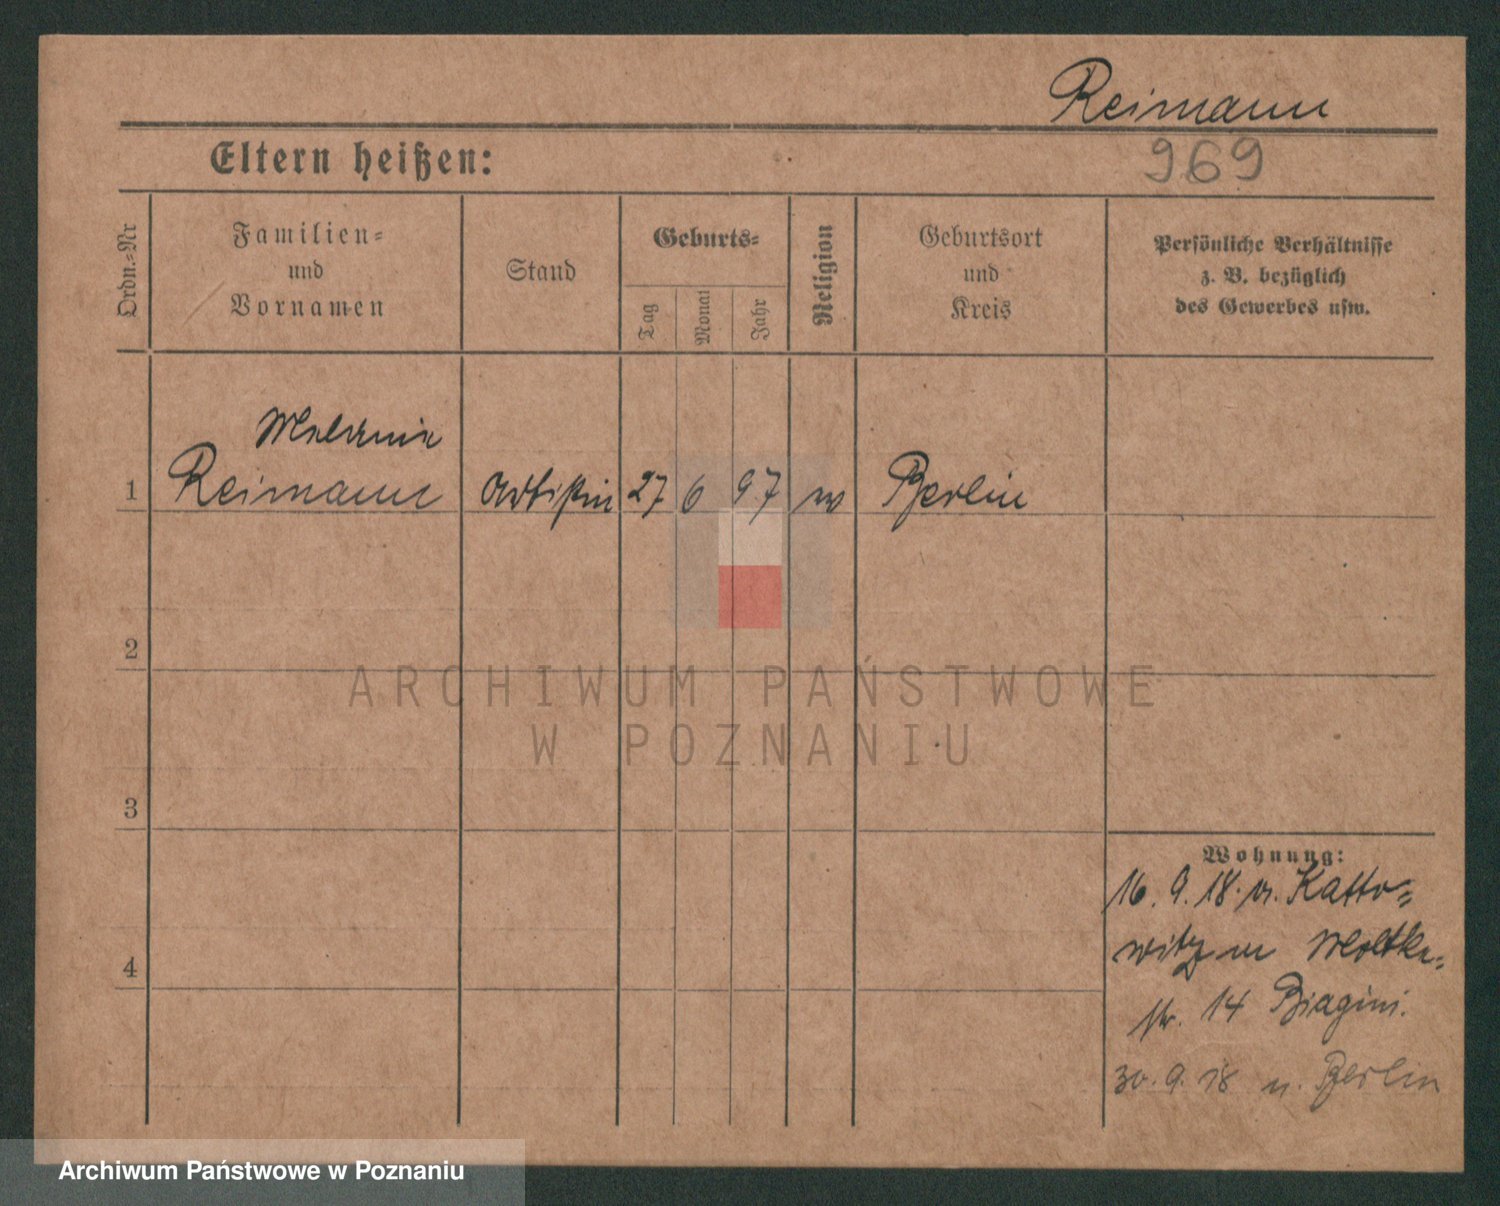 Reimann
Eltern heißen:
969
Ordn.-Nr
Familien-
und
Vornamen
Stand
Geburts-
Tag
Monat
Jahr
Religion
Geburtsort
und
Kreis
Persönliche Verhältnisse
z. B. bezüglich
des Gewerbes usw.
Melanie
1 Reimann Artistin 27 6 97 Berlin
2
ARCHIWUM PAŃSTWOWE
W POZNANIU
3
Wohnung:
16. 9. 18. v. Katto=
witz n Moltke=
str. 14 Biagini.
4
30. 9. 18 n. Berlin
Archiwum Państwowe w Poznaniu